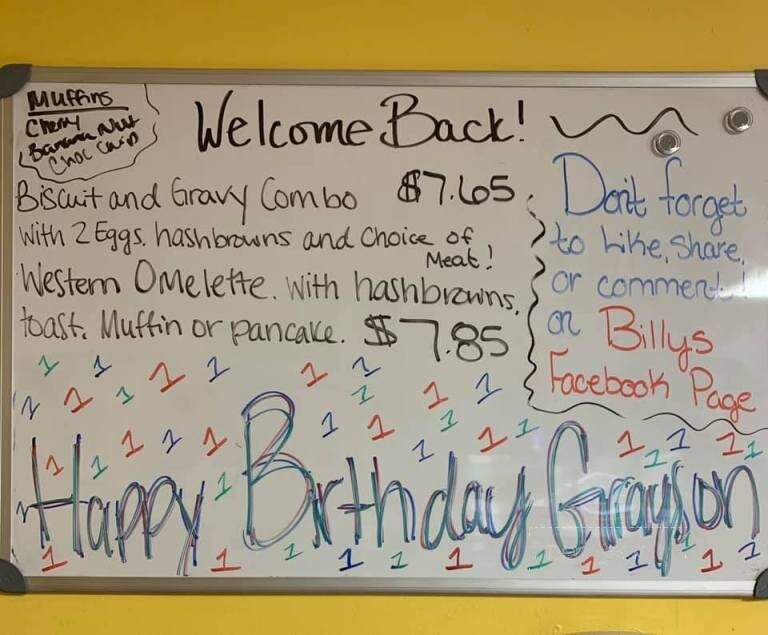 Muffins
Cherry
Banana Nut
Choc Chip
Welcome Back!
Biscuit and Gravy Combo $7.65
with 2 Eggs. hashbrowns and choice of
Meat!
Western Omelette. with hashbrowns,
toast. Muffin or pancake. $7.85
Don't forget
to like, share,
or comment!
on Billys
Facebook Page
1 1 1 1 1 1
1 1 1 1 1 1
1 1 1 1 1 1 1 1
1 1 1 1 1 1 1
1 1
Happy Birthday Grayson
1 1 1 1 1 1 1 1 1 1 1 1